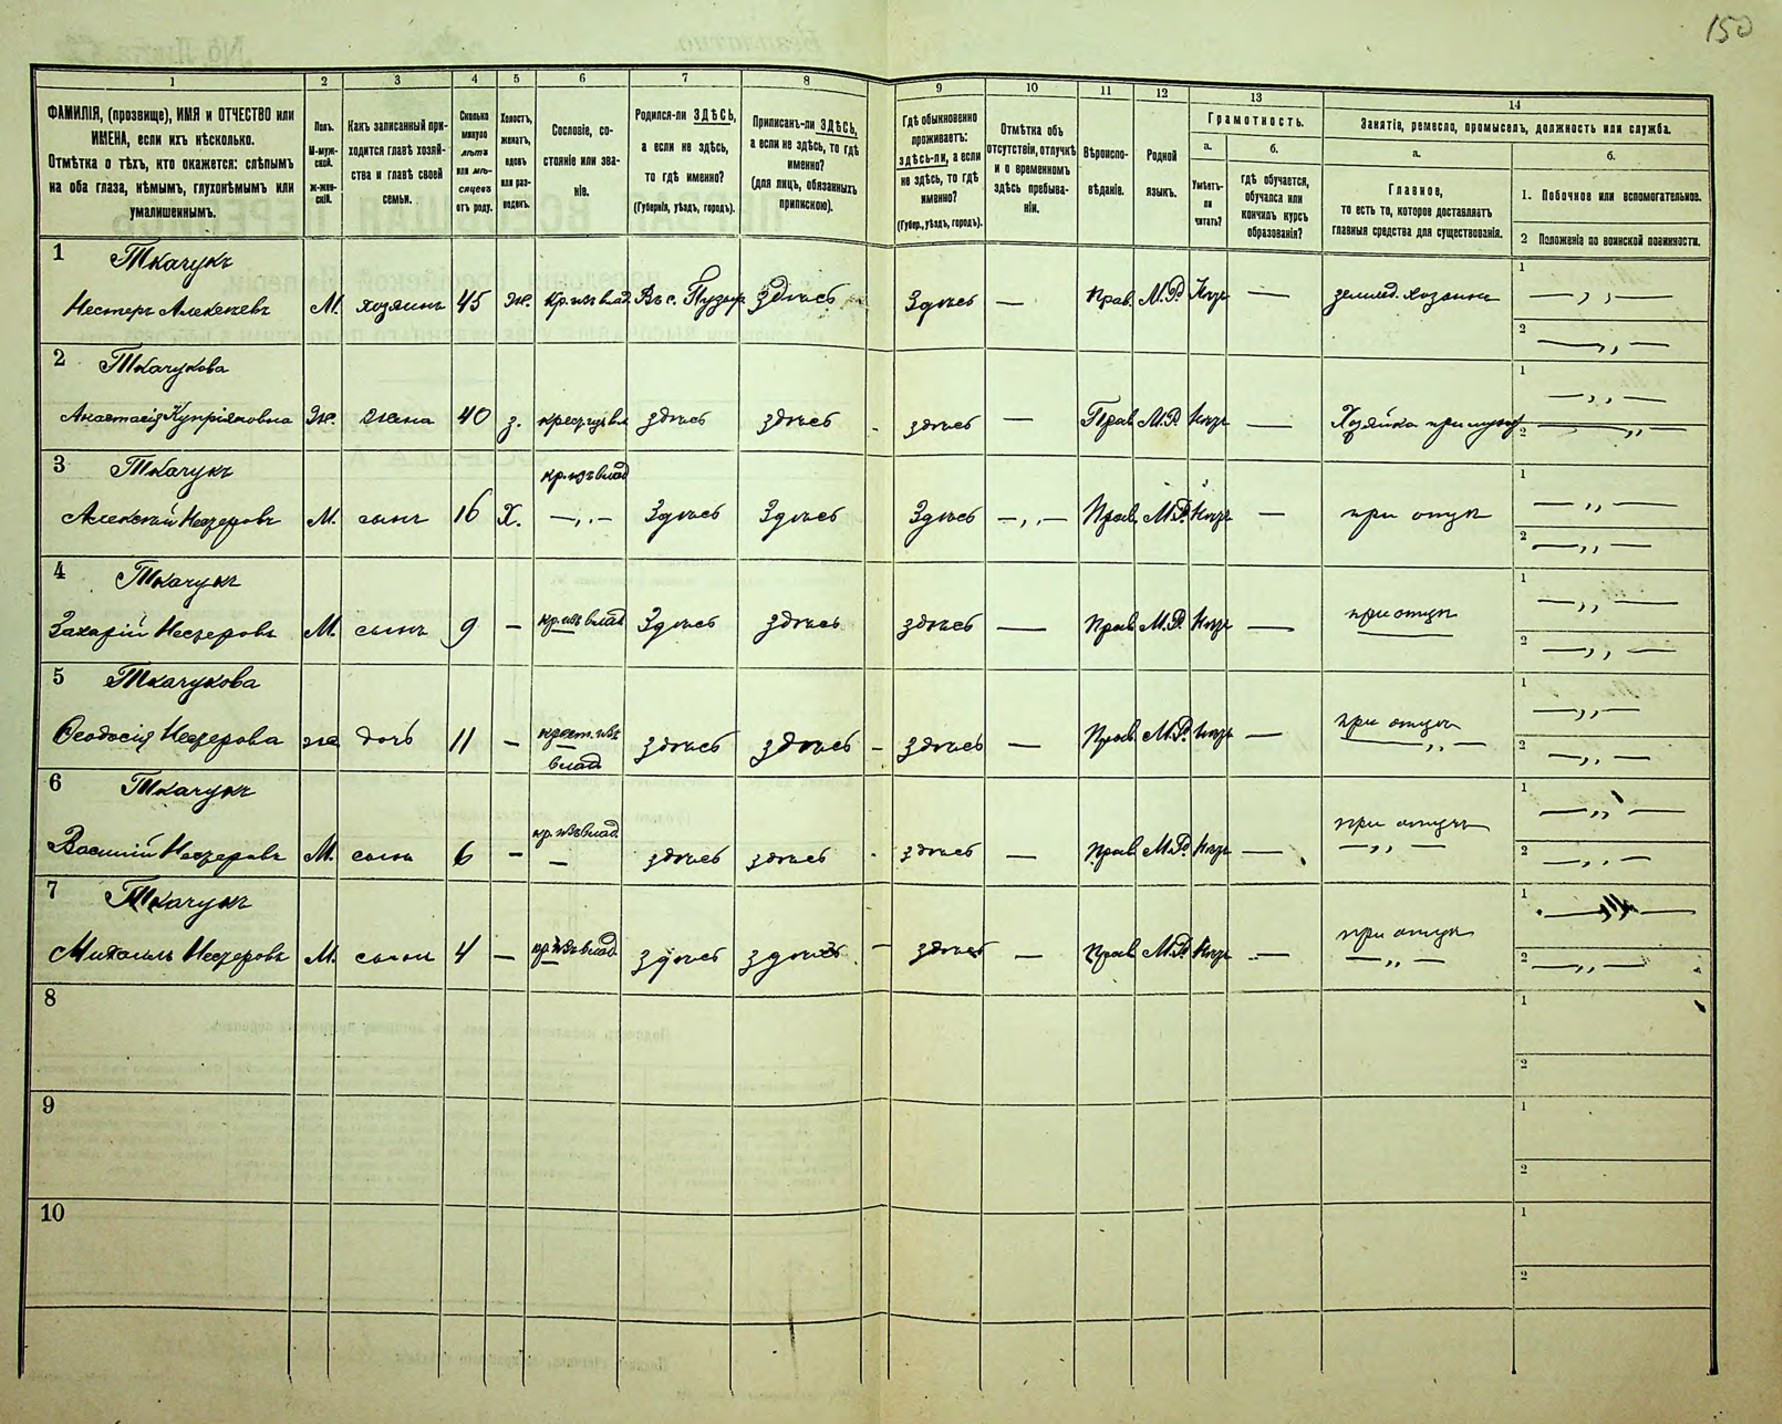 150
1 2 3 4 5 6 7 8 9 10 11 12 13 14
ФАМИЛІЯ, (прозвище), ИМЯ и ОТЧЕСТВО или
ИМЕНА, если ихъ нѣсколько.
Отмѣтка о тѣхъ, кто окажется: слѣпымъ
на оба глаза, нѣмымъ, глухонѣмымъ или
умалишеннымъ.
Полъ.
М-муж-
ской.
ж-жен-
скій.
Какъ записанный при-
ходится главѣ хозяй-
ства и главѣ своей
семьи.
Сколько
минуло
лѣтъ
или мѣ-
сяцевъ
отъ роду.
Холостъ,
женатъ,
вдовъ
или раз-
веденъ.
Сословіе, со-
стояніе или зва-
ніе.
Родился-ли ЗДѢСЬ,
а если не здѣсь,
то гдѣ именно?
(Губернія, уѣздъ, городъ).
Приписанъ-ли ЗДѢСЬ,
а если не здѣсь, то гдѣ
именно?
(для лицъ, обязанныхъ
припискою).
Гдѣ обыкновенно
проживаетъ:
здѣсь-ли, а если
не здѣсь, то гдѣ
именно?
(Губер., уѣздъ, городъ).
Отмѣтка объ
отсутствіи, отлучкѣ
и о временномъ
здѣсь пребыва-
ніи.
Вѣроиспо-
вѣданіе.
Родной
языкъ.
Грамотность.
а.
Умѣетъ-
ли
читать?
б.
гдѣ обучается,
обучался или
кончилъ курсъ
образованія?
Занятіе, ремесло, промыселъ, должность или служба.
а.
Главное,
то есть то, которое доставляетъ
главныя средства для существованія.
б.
1. Побочное или вспомогательное.
2 Положеніе по воинской повинности.
1 Ткачукъ
Нестеръ Алексеевъ М. хозяинъ 45 Же. Кр. изъ влад Въ с. здѣсь Здѣсь — Прав. М.Р. — землед. хозяинъ 1 — „ —
2 — „ —
2 Ткачукова
Анастасія Купріяновна Же. жена 40 з. здѣсь здѣсь здѣсь — Прав М.Р. — Хозяйка при 1 — „ —
2 — „ —
3 Ткачукъ кр. изъ влад
Алексѣй Нестеровъ М. сынъ 16 Х. — „ — Здѣсь Здѣсь Здѣсь — „ — Прав М.Р. — при отцѣ 1 — „ —
2 — „ —
4 Ткачукъ
Захарій Нестеровъ М. сынъ 9 — кр. изъ влад Здѣсь здѣсь здѣсь — Прав М.Р. — при отцѣ 1 — „ —
2 — „ —
5 Ткачукова
Ѳеодосія Нестерова же дочь 11 — крест. изъ влад здѣсь здѣсь здѣсь — Прав. М.Р. — при отцѣ — „ — 1 — „ —
2 — „ —
6 Ткачукъ
Василій Нестеровъ М. сынъ 6 — кр. изъ влад. — здѣсь здѣсь здѣсь — Прав М.Р. — при отцѣ — „ — 1 — „ —
2 — „ —
7 Ткачукъ
Михаилъ Нестеровъ М. сынъ 4 — кр. изъ влад здѣсь здѣсь здѣсь — Прав М.Р. — при отцѣ — „ — 1 — „ —
2 — „ —
8 1
2
9 1
2
10 1
2